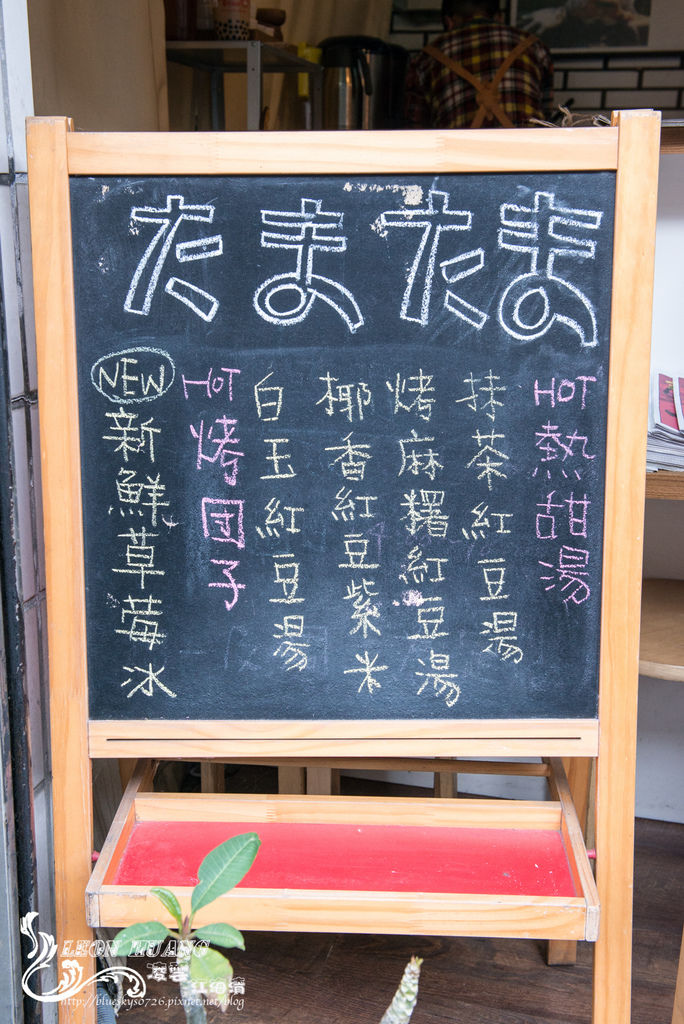 たまたま
HOT 熱甜湯
抹茶紅豆湯
烤麻糬紅豆湯
椰香紅豆紫米
白玉紅豆湯
HOT 烤団子
NEW 新鮮草莓冰
LEON HUANG
凌雲
http://bluesky50726.pixnet.net/blog